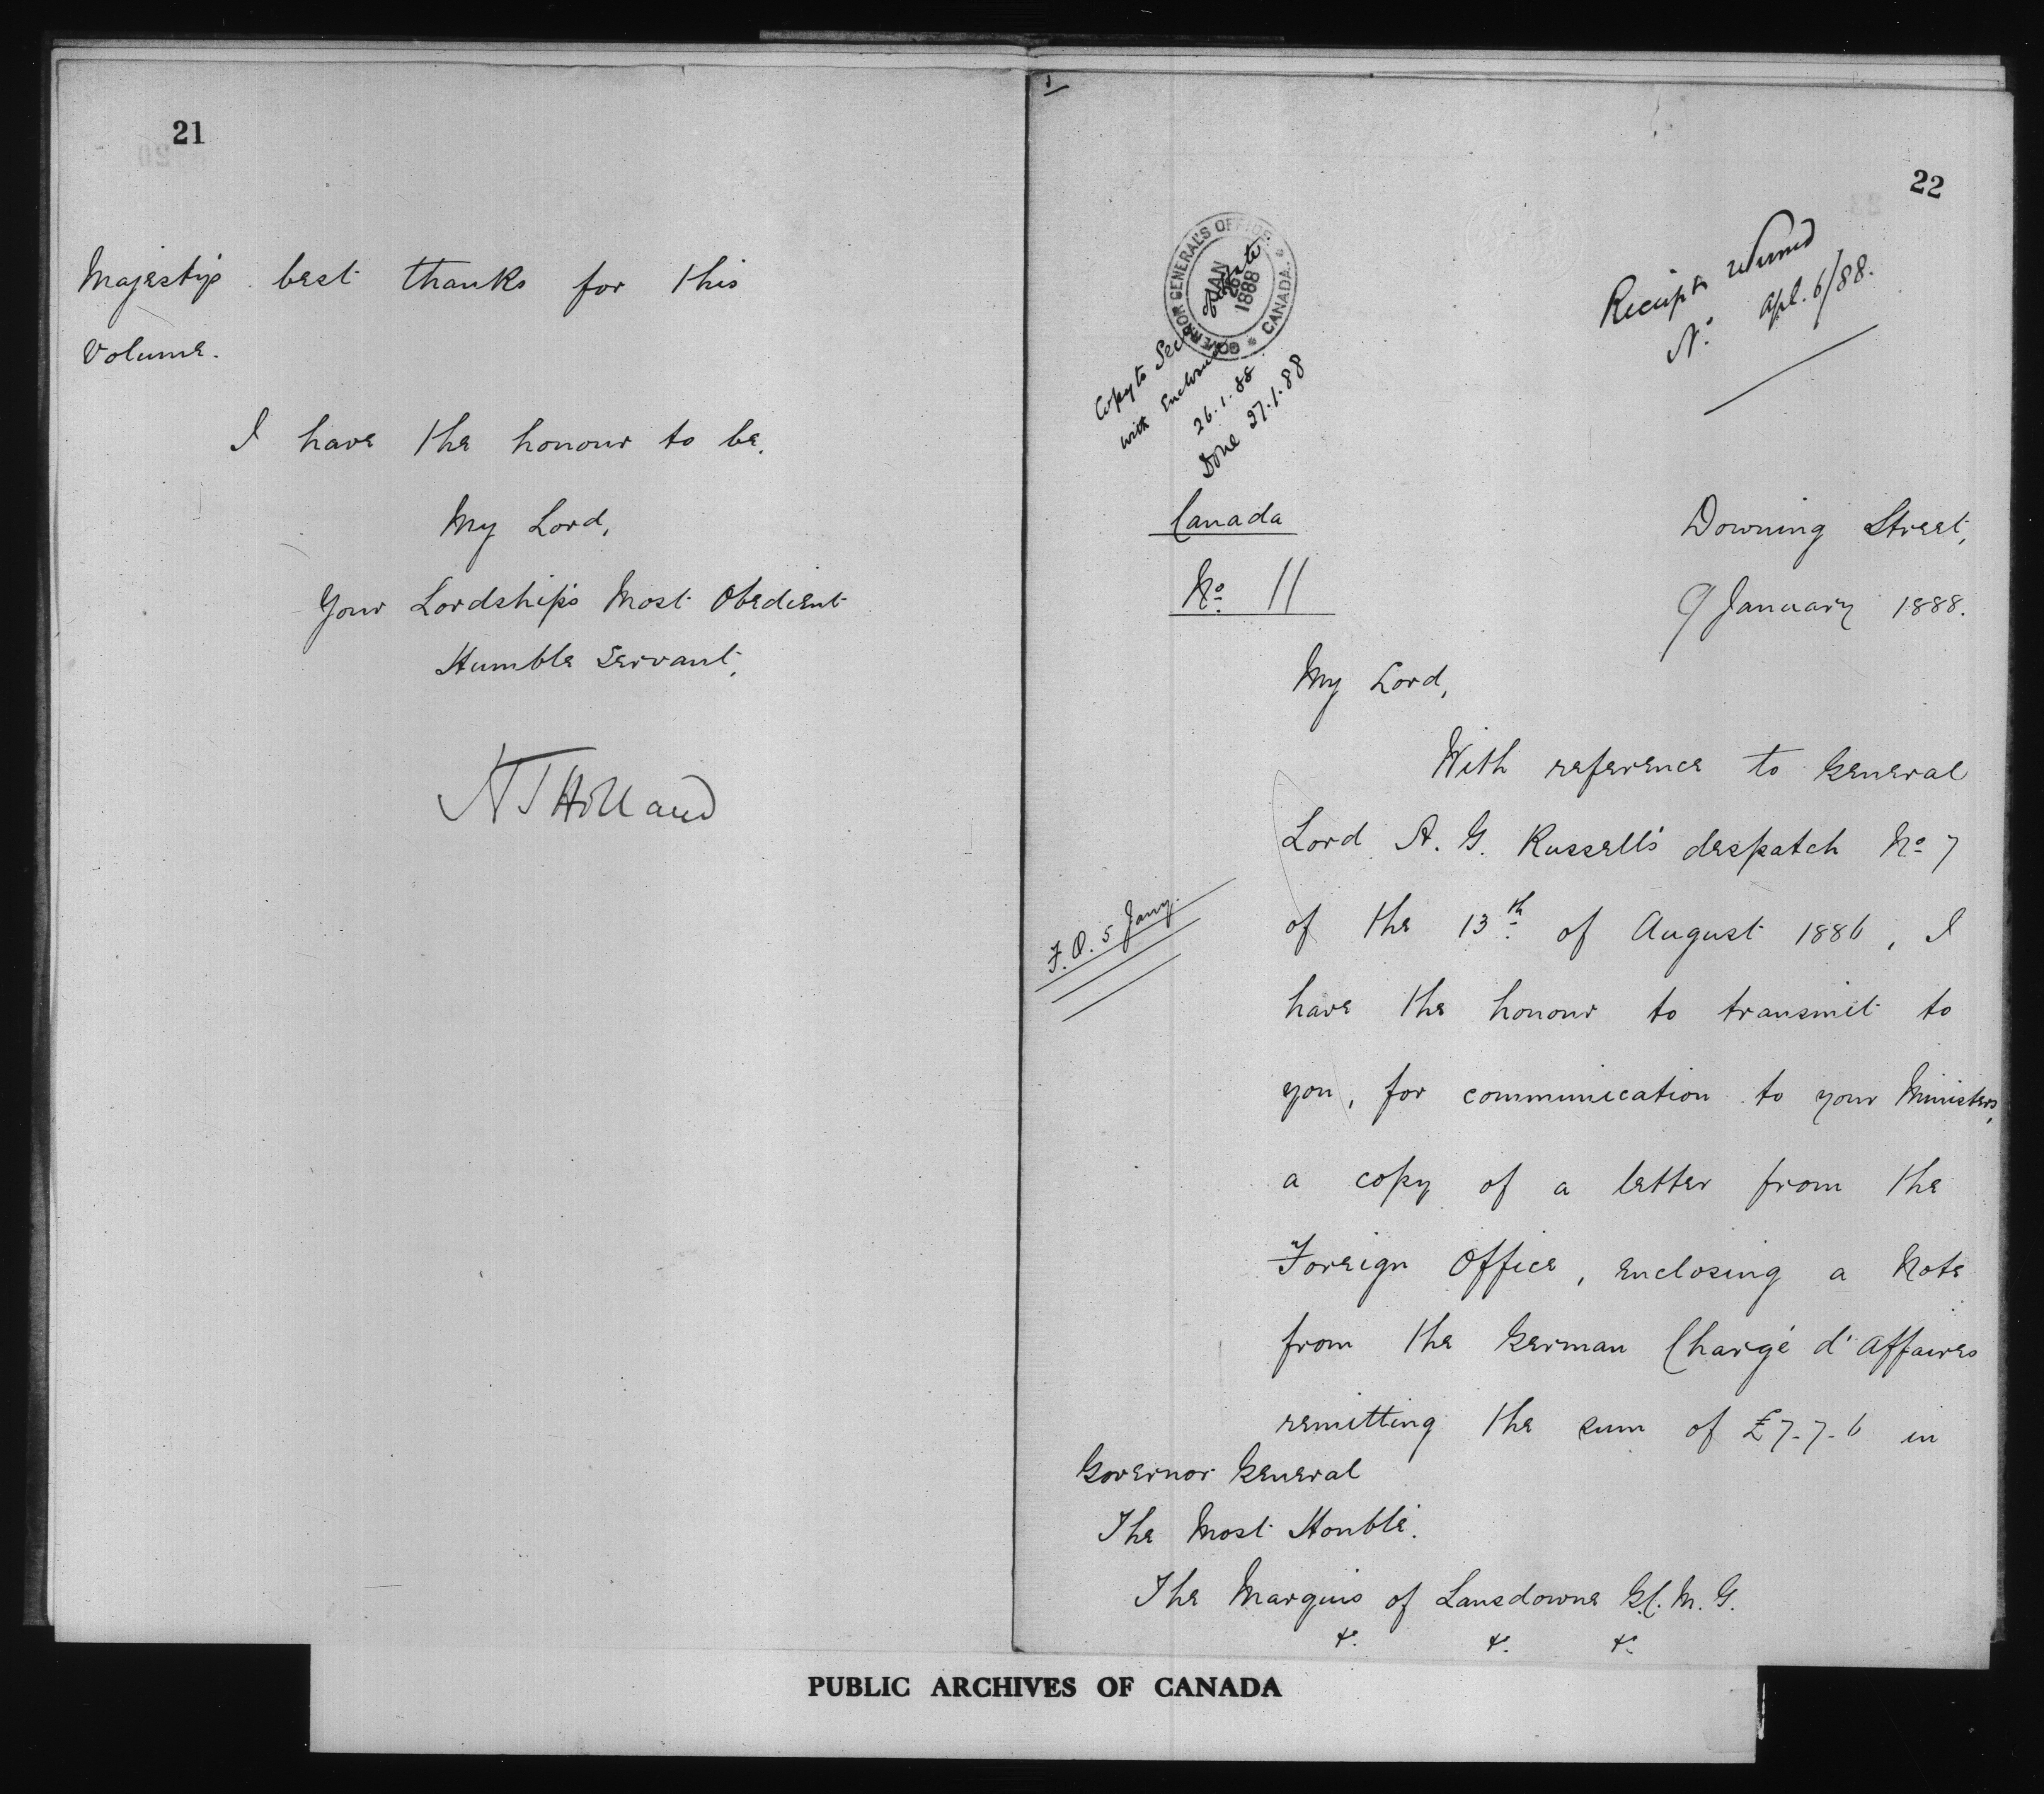 21
Majesty's best thanks for this
Volume.
I have the honour to be,
My Lord,
Your Lordship's Most Obedient
Humble Servant,
H T Holland
22
GOVERNOR GENERAL'S OFFICE
CANADA.
JAN
26
1888
Copy to Sec of State
with Enclosure
26.1.88
Done 27.1.88
Receipts returned
Apl. 6/88.
Canada
No 11
Downing Street,
9 January 1888.
My Lord,
With reference to General
Lord A. G. Russell's despatch No 7
of the 13th of August 1886, I
F.O. 5 Jany.
have the honour to transmit to
you, for communication to your Ministers,
a copy of a letter from the
Foreign Office, enclosing a Note
from the German Chargé d'Affaires
remitting the sum of £7-7-6 in
Governor General
The Most Honble.
The Marquis of Lansdowne G.C.M.G.
&c. &c. &c.
PUBLIC ARCHIVES OF CANADA